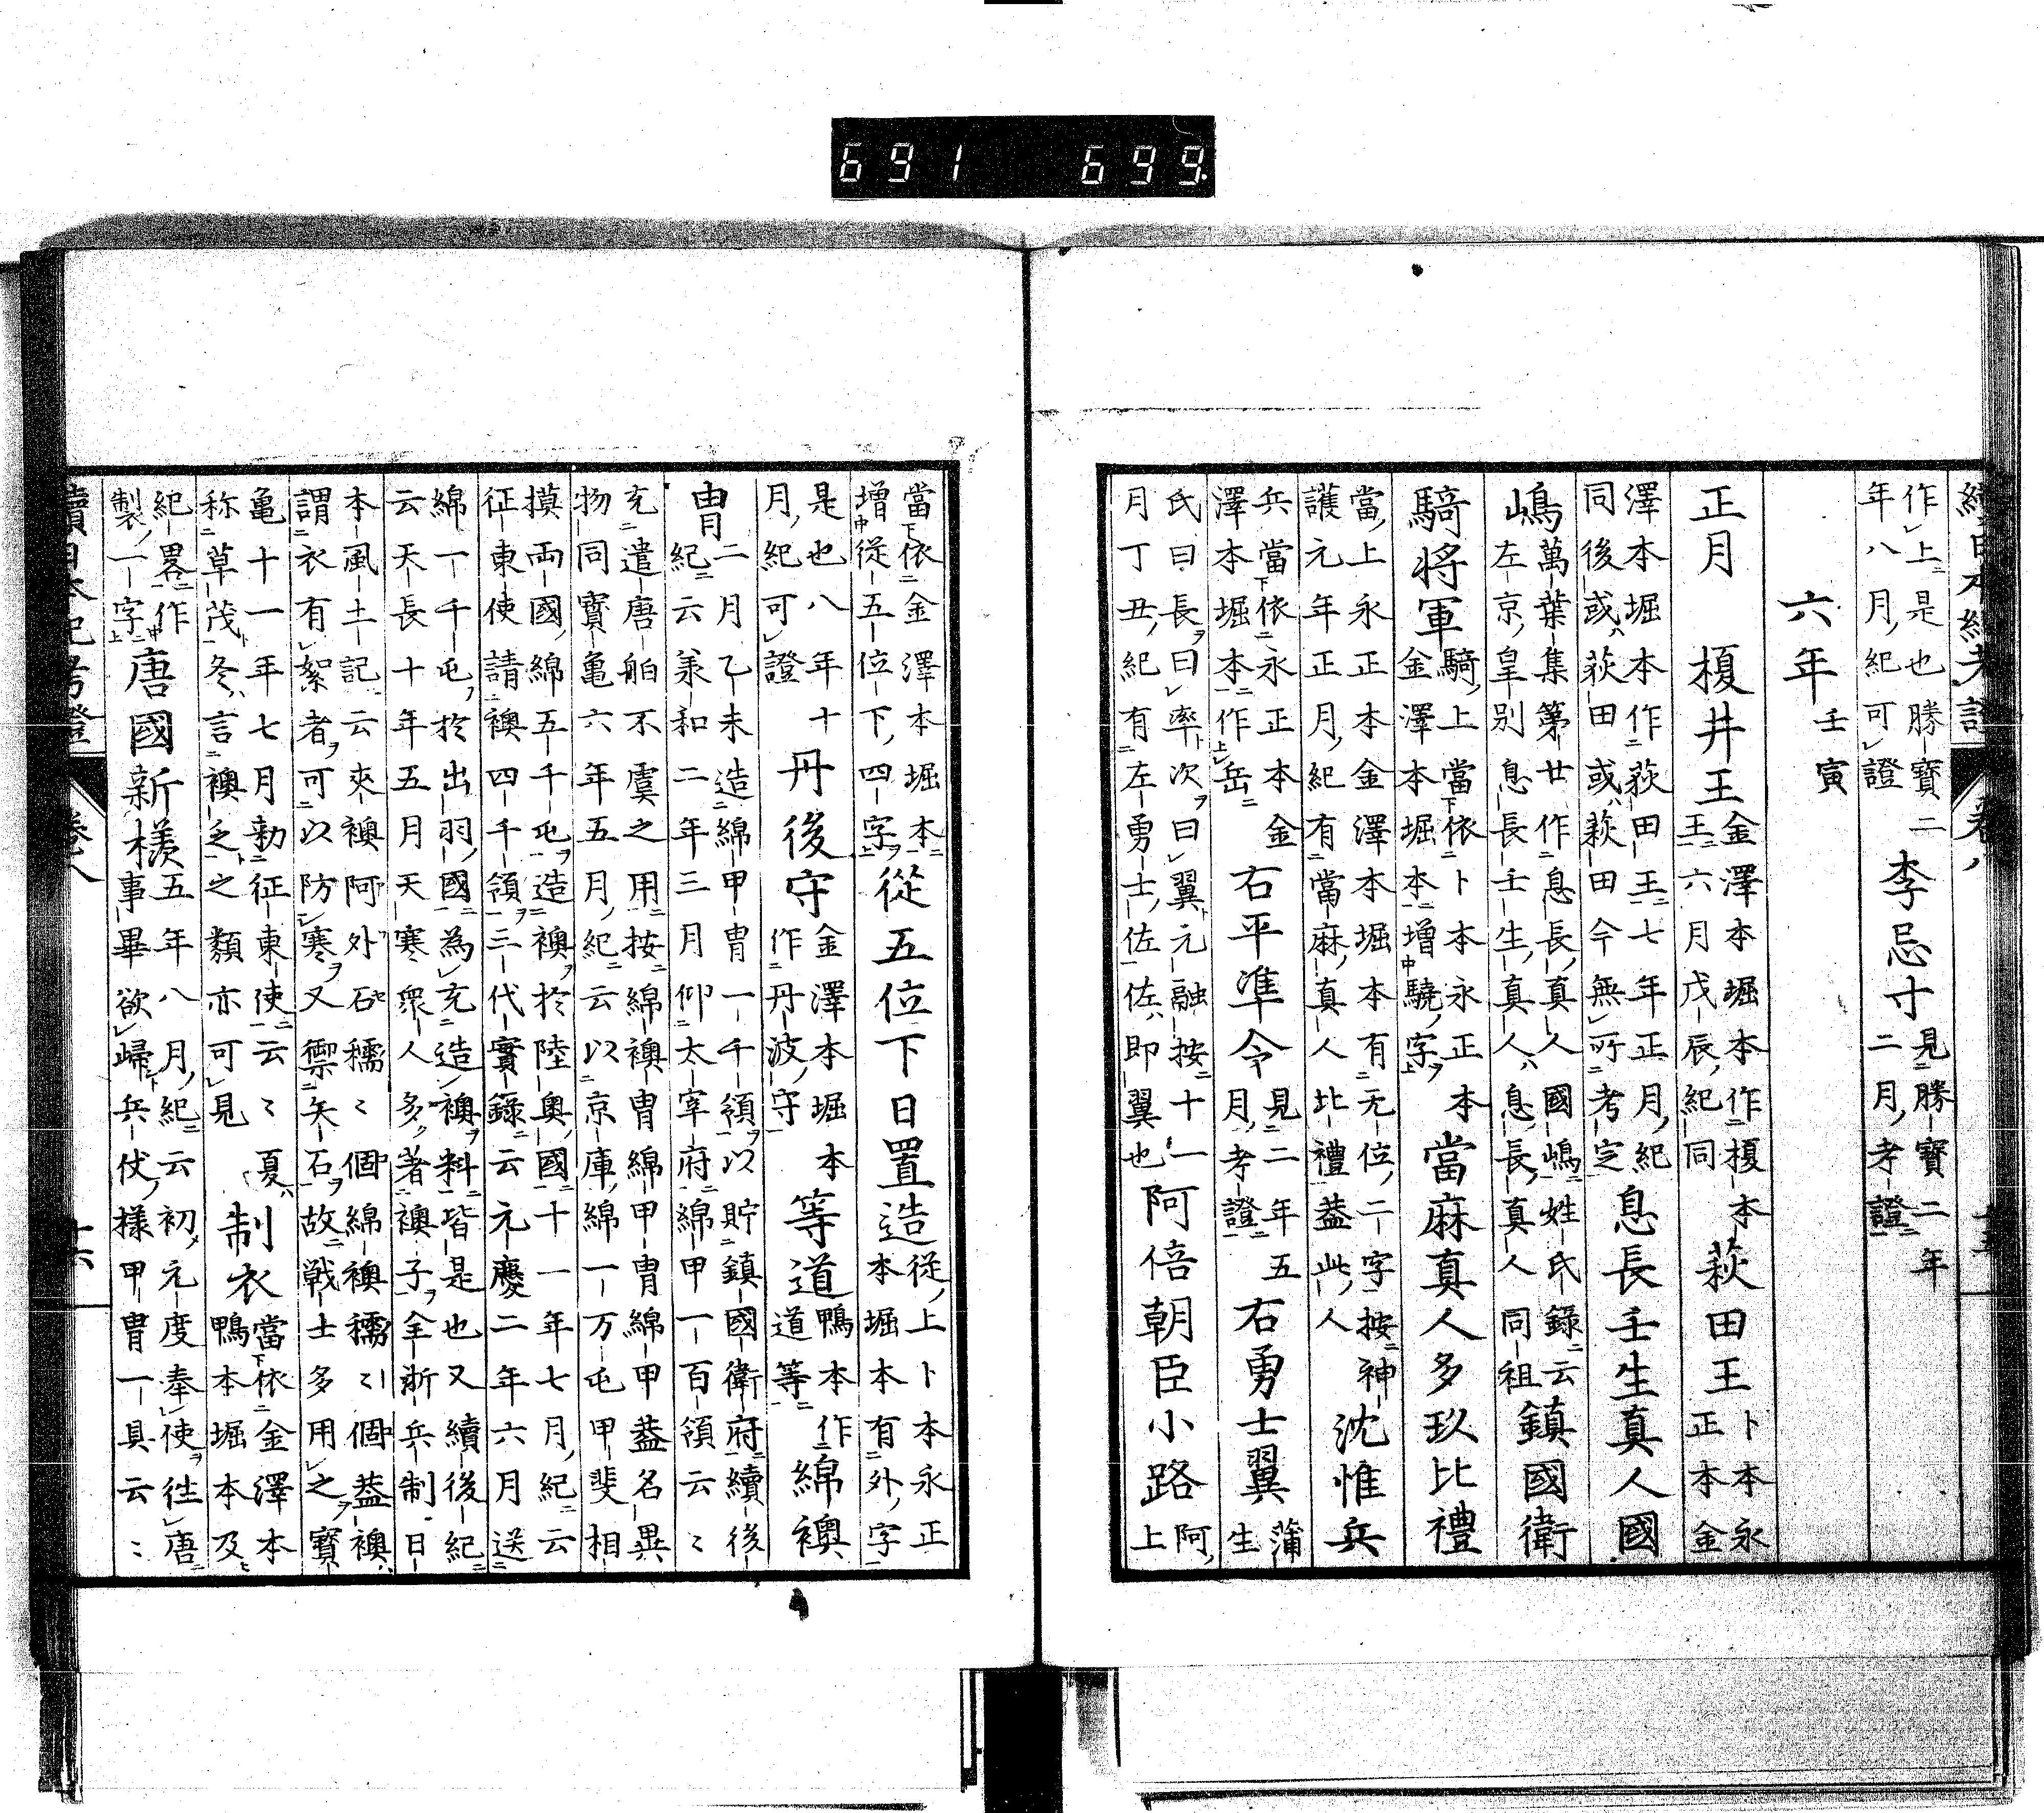 續日本紀考證 卷八 十五
作上是也勝寶二年八月紀可證 李忌寸 見勝寶二年二月考證
六年 壬寅
正月 榎井王 金澤本堀本作榎本王六月戊辰紀同 萩田王 卜本永正本金
澤本堀本作荻田王七年正月紀同後或荻田或萩田今無所考定 息長壬生真人國
嶋 萬葉集第廿作息長真人國嶋姓氏錄云左京皇別息長壬生真人息長真人同祖 鎮國衛
騎將軍 騎上當依卜本永正本金澤本堀本增驍字 當麻真人多玖比禮
當上永正本金澤本堀本有无位二字按神護元年正月紀有當麻真人比禮蓋此人 沈惟兵
兵當依永正本金澤本堀本作岳 右平準令 見二年五月考證 右勇士翼 蒲生
氏曰長曰率次曰翼元融按十一月丁丑紀有左勇士佐佐即翼也 阿倍朝臣小路 阿上
當依金澤本堀本增從五位下四字 從五位下日置造 從上卜本永正本堀本有外字
是也八年十月紀可證 丹後守 金澤本堀本作丹波守 等道 鴨本作道等 綿襖
冑 二月乙未造綿甲冑一千領以貯鎮國衛府續後紀云承和二年三月仰太宰府綿甲一百領云〻
充遣唐舶不虞之用按綿襖冑綿甲冑綿甲蓋名異物同寶亀六年五月紀云以京庫綿一万屯甲斐相
摸両國綿五千屯造襖於陸奥國十一年七月紀云征東使請襖四千領三代實錄云元慶二年六月送
綿一千屯於出羽國為充造襖料皆是也又續後紀云天長十年五月天寒衆人多著襖子全淅兵制曰
本風土記云夾襖阿外矽穤〻個綿襖穤〻個蓋襖謂衣有絮者可以防寒又禦矢石故戦士多用之寶
亀十一年七月勅征東使云〻夏称草茂冬言襖乏之類亦可見 制衣 當依金澤本鴨本堀本及
紀畧作製一字 唐國新樣 五年八月紀云初元度奉使往唐事畢欲歸兵仗樣甲冑一具云〻
續日本紀考證 卷八 十六
691 699